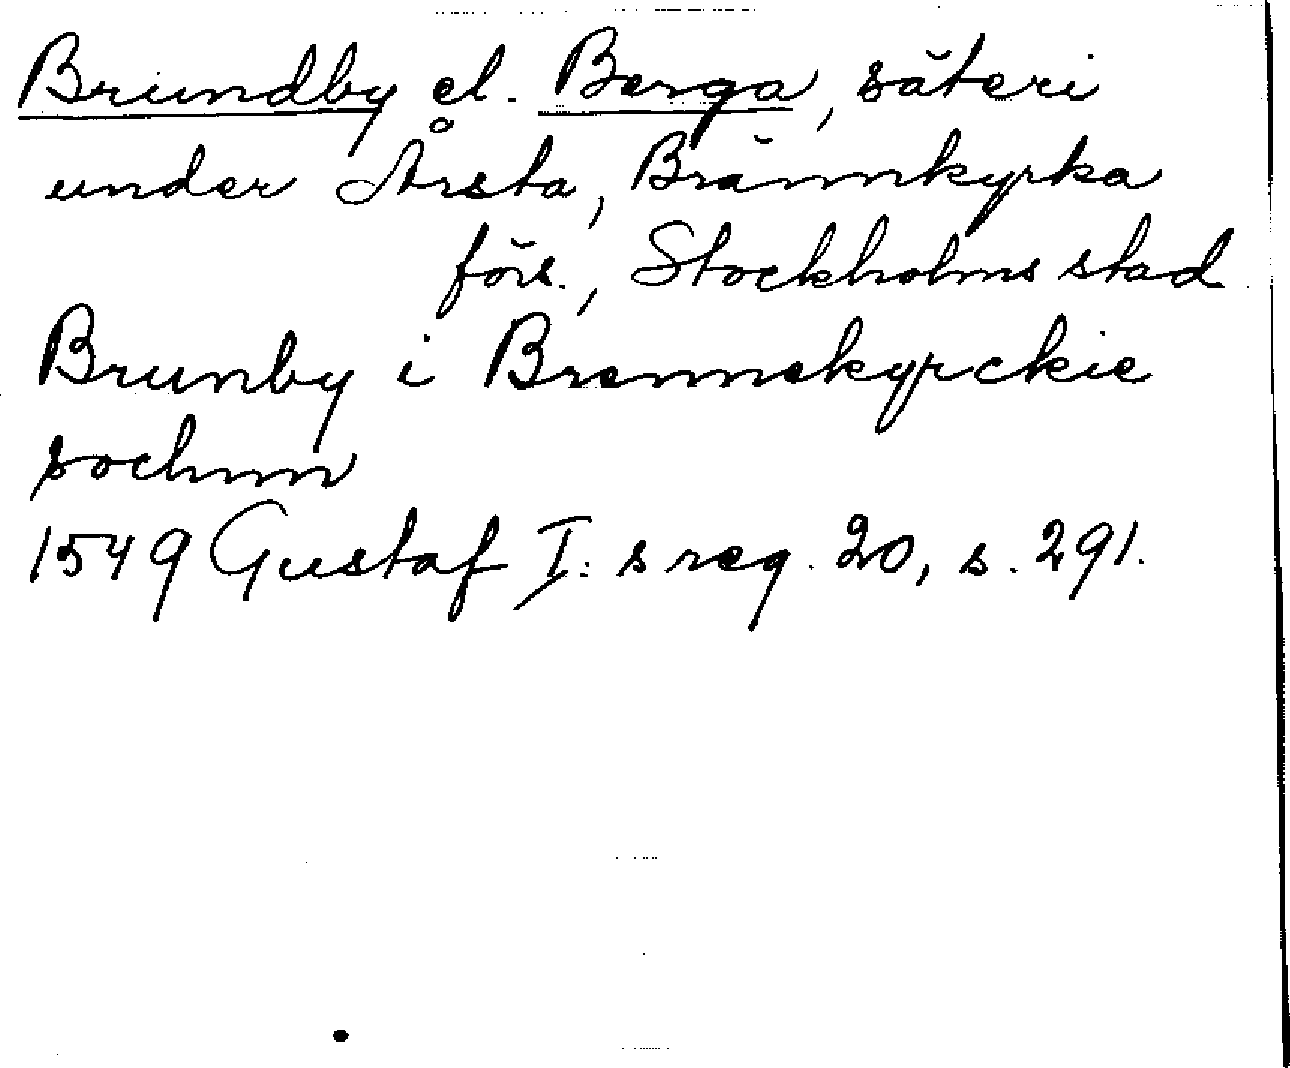 Brundby el. Berga, säteri
under Årsta, Brännkyrka
förs., Stockholms stad
Brunby i Brennekyrckie
sochnn
1549 Gustaf I:s reg. 20, s. 291.